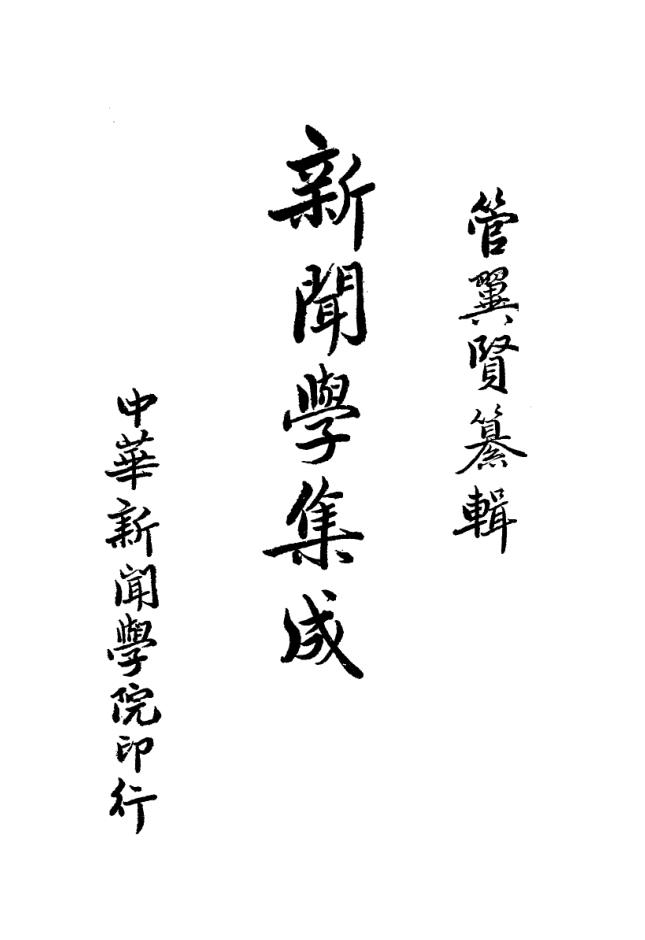 管翼賢纂輯
新聞學集成
中華新聞學院印行